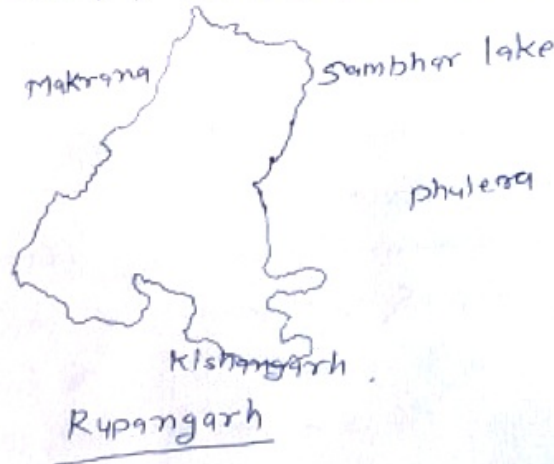 Makrana
Sambhar lake
Phulera
Kishangarh.
Rupangarh